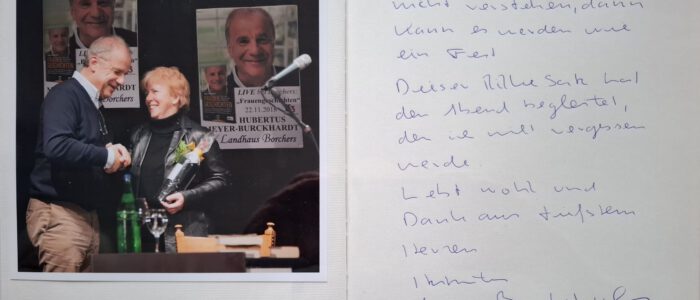 LIVE bei Borchers:
"Frauengeschichten"
22.11.2018
HUBERTUS
MEYER-BURCKHARDT
Landhaus Borchers
LIVE
GESCHICHTEN
Borchers
nicht verstehen, dann
kann es werden wie
ein Fest
Dieser Rilke Satz hat
den Abend begleitet,
den ich nicht vergessen
werde.
Lebt wohl und
Dank aus tiefstem
Herzen
Hubertus